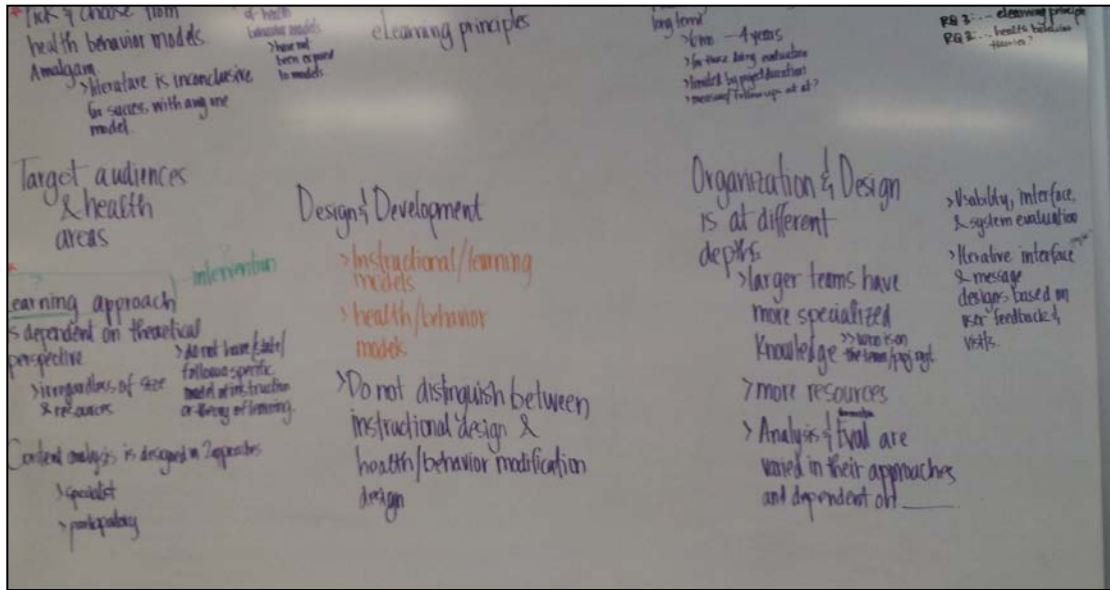 * Pick & choose from
health behavior models.
Amalgam
>literature is inconclusive
for success with any one
model.
of health
behavior models
>have not
been exposed
to models
eLearning principles
long term?
>6 mo - 4 years
>for those doing evaluation
>limited by project duration
>measured/follow ups at all?
RQ 3:... elearning principle
RQ 2:... health behavior
theories?
Target audiences
& health
areas
*
intervention
Learning approach
is dependent on theoretical
perspective
>irregardless of size
& resources
>do not have/state/
follow a specific
model of instruction
or theory of learning.
Content analysis is designed in 2 approaches
>specialist
>participatory
Design & Development
>Instructional/learning
models
>health/behavior
models
>Do not distinguish between
instructional design &
health/behavior modification
design
Organization & Design
is at different
depths.
>larger teams have
more specialized
Knowledge >>who is on
the team/proj mgt.
>more resources
>Analysis & Eval are
varied in their approaches
and dependent on ____
>Usability, interface,
& system evaluation
>Iterative interface
& message
designs based on
user feedback &
visits.